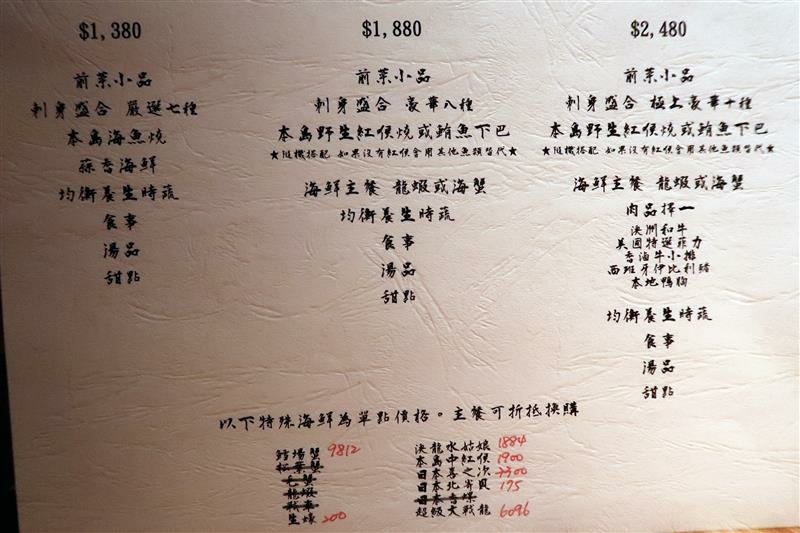 $1,380
前菜小品
刺身盛合 嚴選七種
本島海魚燒
蒜香海鮮
均衡養生時蔬
食事
湯品
甜點
$1,880
前菜小品
刺身盛合 豪華八種
本島野生紅條燒或鮪魚下巴
★隨機搭配 如果沒有紅條會用其他魚類替代★
海鮮主餐 龍蝦或海蟹
均衡養生時蔬
食事
湯品
甜點
$2,480
前菜小品
刺身盛合 極上豪華十種
本島野生紅條燒或鮪魚下巴
★隨機搭配 如果沒有紅條會用其他魚類替代★
海鮮主餐 龍蝦或海蟹
肉品擇一
澳洲和牛
美國特選菲力
香滷牛小排
西班牙伊比利豬
本地鴨胸
均衡養生時蔬
食事
湯品
甜點
以下特殊海鮮為單點價格。主餐可折抵換購
鱈場蟹 9812
松葉蟹
毛蟹
龍蝦
戰車
生蠔 200
澳龍水姑娘 1884
本島中紅條 1900
日本喜之次 3300
日本北寄貝 175
日本香螺
超級大戰龍 6096